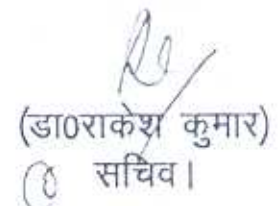 (डा0राकेश कुमार)
सचिव।